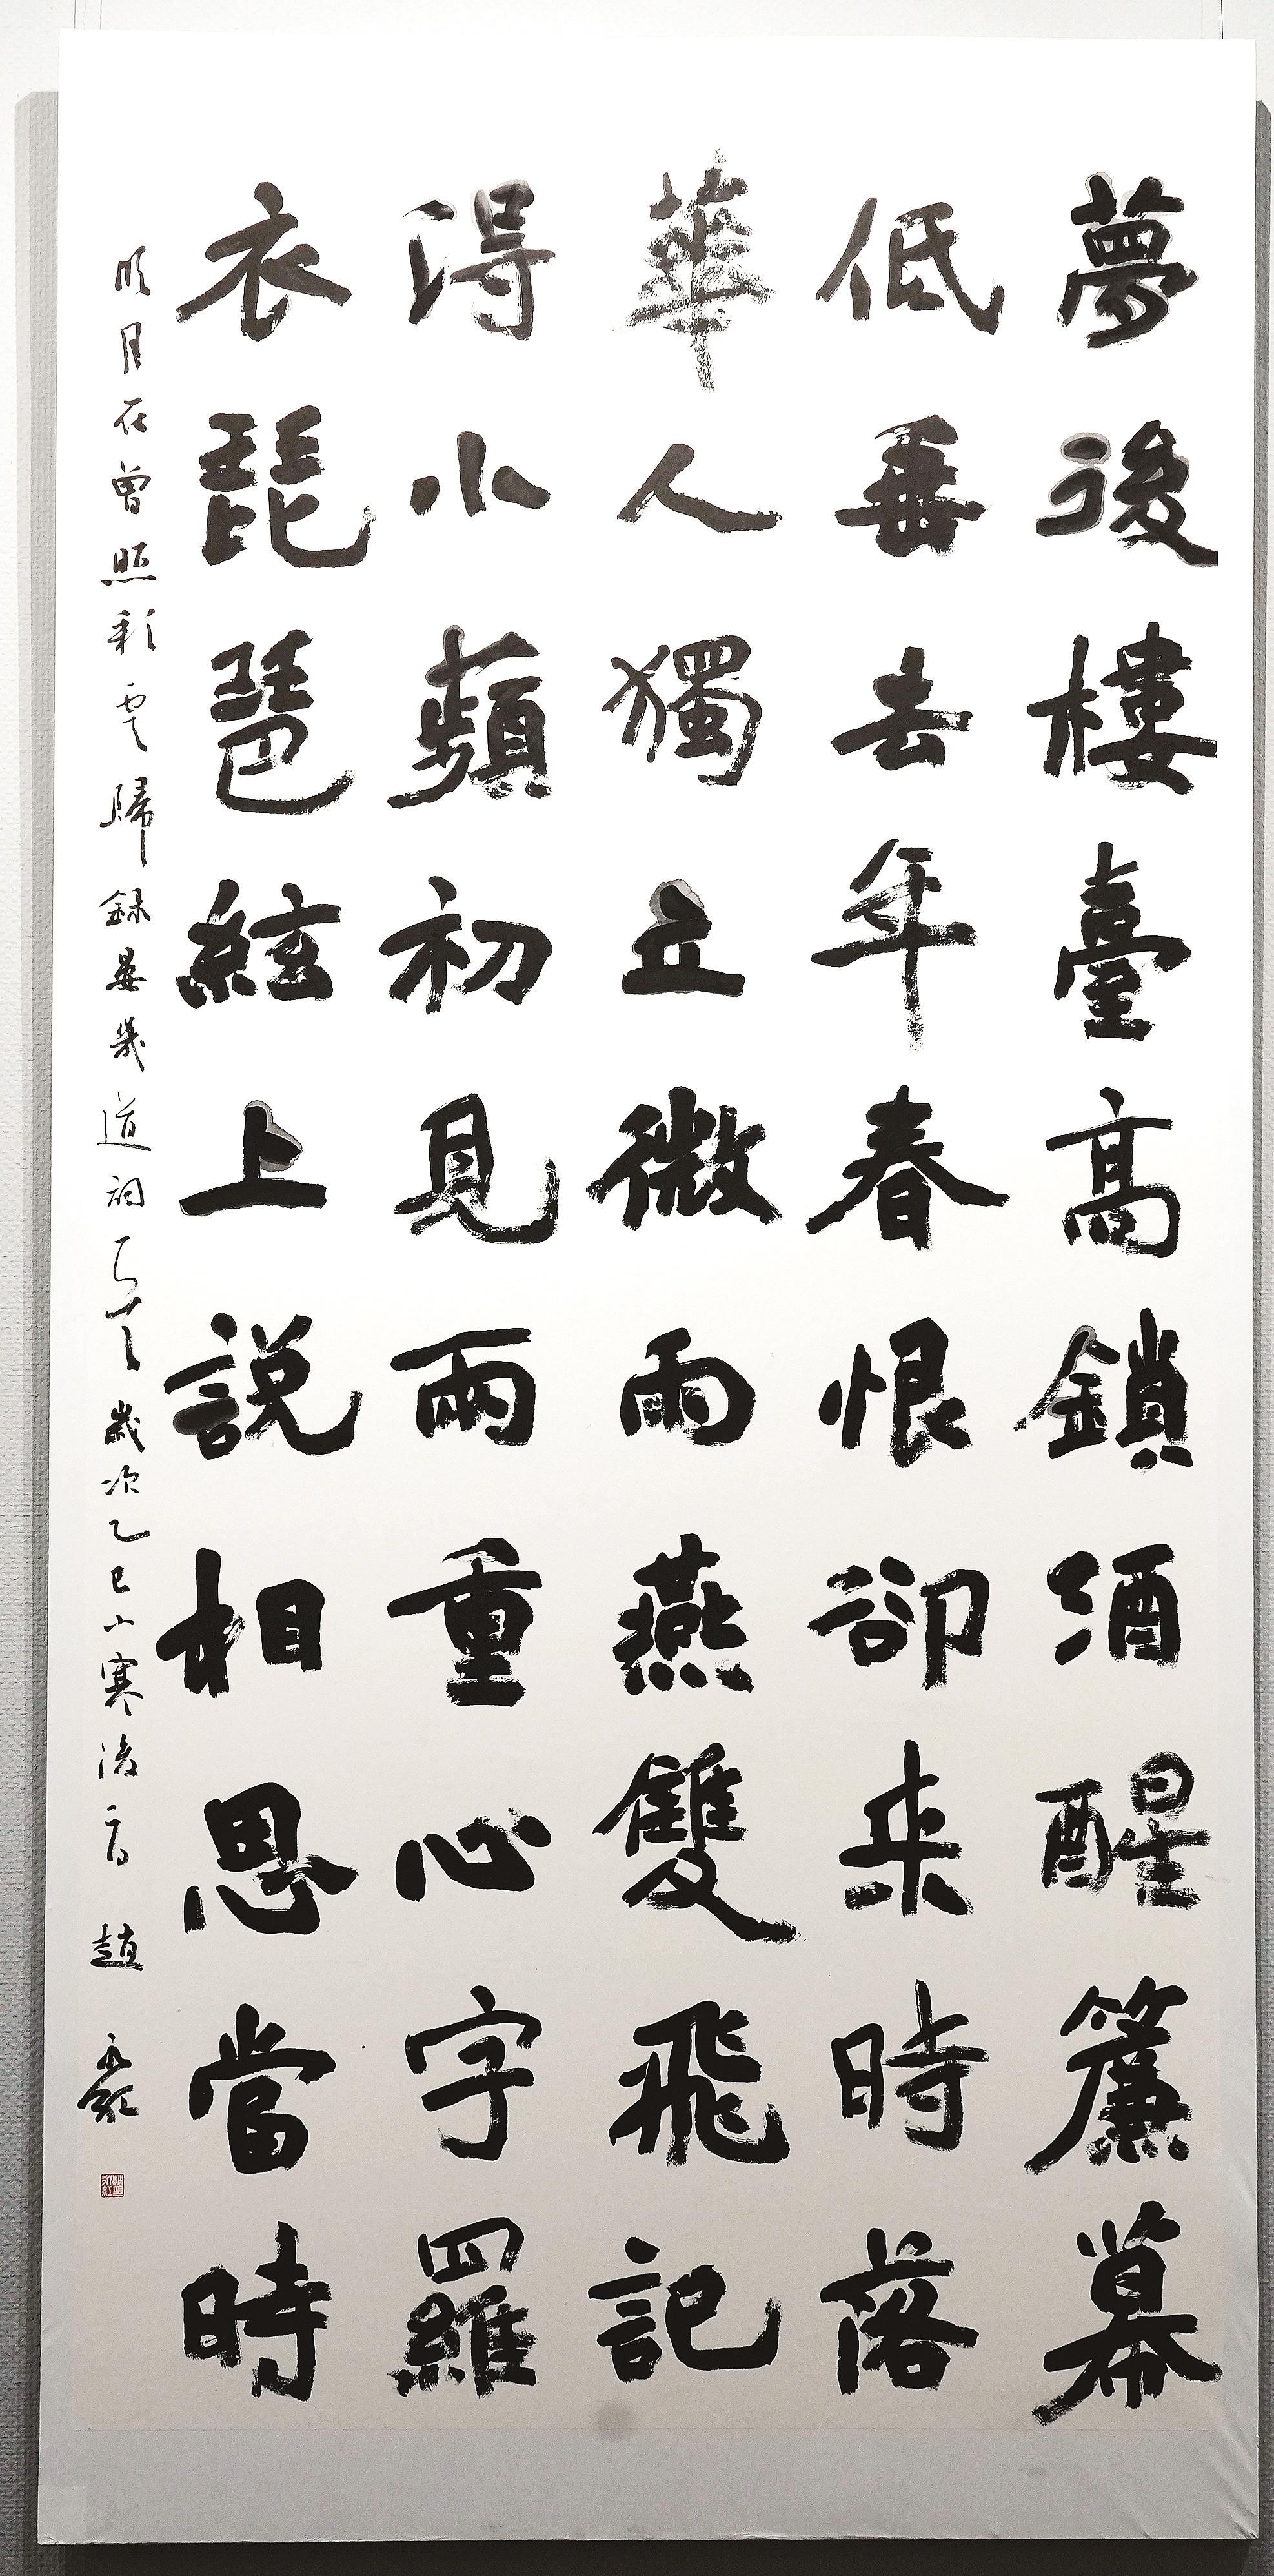 夢後樓臺高鎖酒醒簾幕
低垂去年春恨卻来時落
華人獨立微雨燕雙飛記
得小蘋初見兩重心字羅
衣琵琶絃上説相思當時
明月在曾照彩雲歸録晏幾道詞歲次乙巳小寒後趙